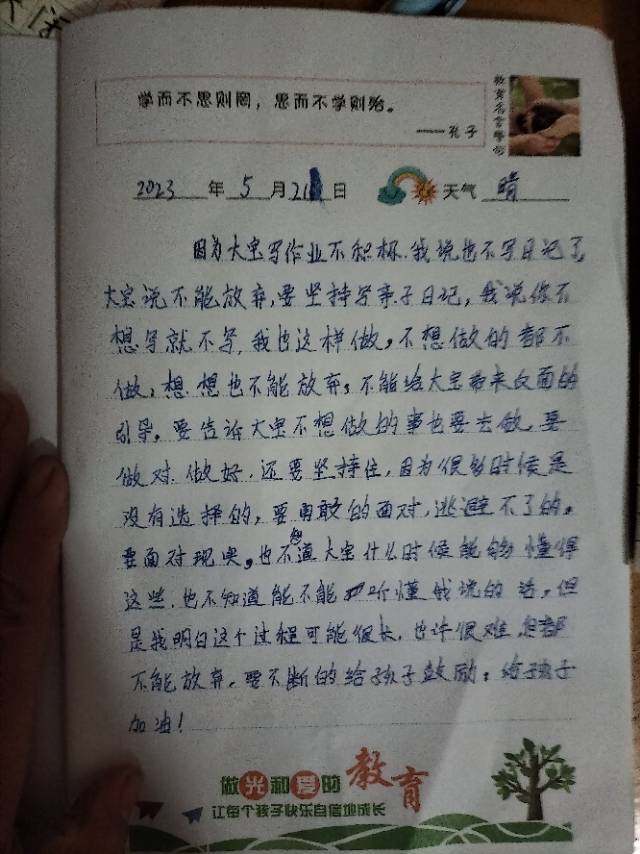 学而不思则罔，思而不学则殆。
——孔子
教育名言警句
2023年5月21日 天气 晴
因为大宝写作业不积极.我说也不写日记了,
大宝说不能放弃,要坚持写亲子日记，我说你不
想写就不写,我也这样做，不想做的都不
做，想想也不能放弃，不能给大宝带来反面的
引导。要告诉大宝不想做的事也要去做，要
做对.做好.还要坚持住，因为很多时候是
没有选择的，要勇敢的面对,逃避不了的。
要面对现实，也不知道大宝什么时候能够懂得
这些.也不知道能不能听懂我说的话，但
是我明白这个过程可能很长.也许很难,但都
不能放弃.要不断的给孩子鼓励；给孩子
加油！
做光和爱的教育
让每个孩子快乐自信地成长